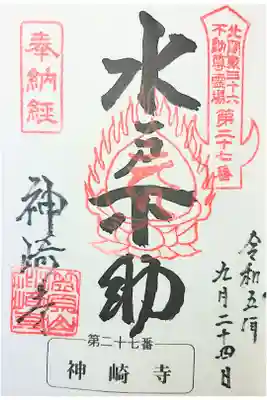 北関東三十六
不動尊霊場
第二十七番
令和五年
九月二十四日
水戸不動
奉納経
神崎寺
第二十七番
神崎寺